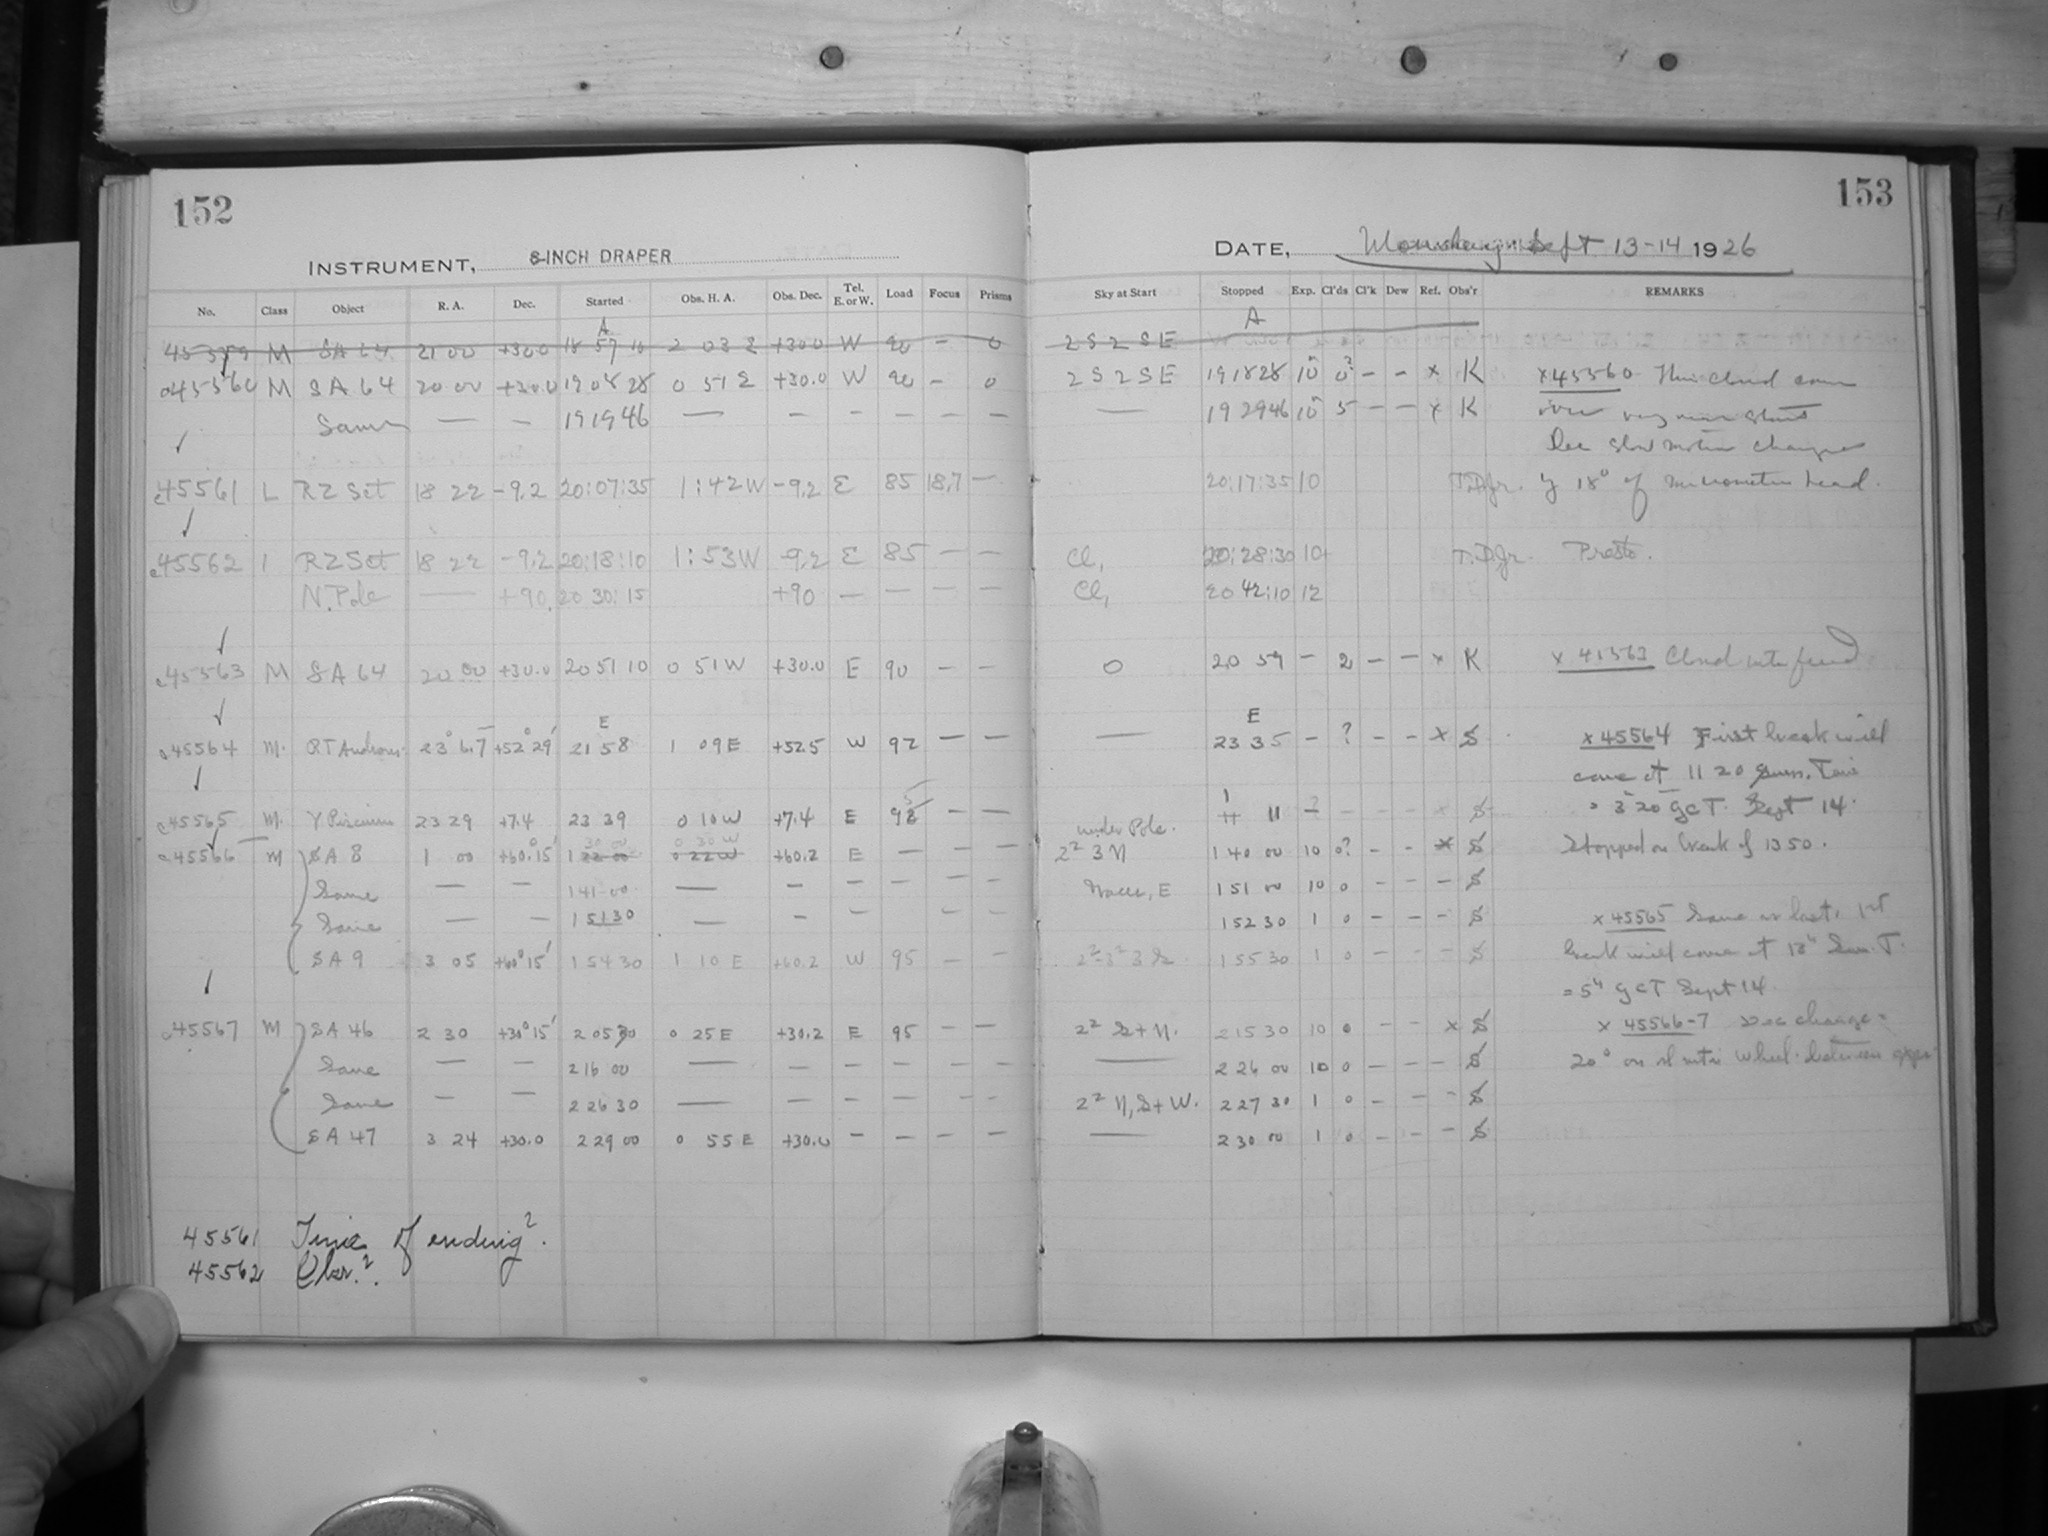 152
INSTRUMENT, 8-INCH DRAPER
No. Class Object R. A. Dec. Started Obs. H. A. Obs. Dec. Tel. E. or W. Load Focus Prisms
A
M SA 64 21 00 +30.0 18 57 2 03 E +30.0 W 90 – 0
45560 M SA 64 20 00 +30.0 19 08 28 0 51 E +30.0 W 90 – 0
Same — – 19 19 46 — – – – – –
45561 L RZ Sct 18 22 -9.2 20:07:35 1:42W -9.2 E 85 18.7 —
45562 I RZ Sct 18 22 -9.2 20:18:10 1:53W -9.2 E 85 — —
N. Pole — +90 20 30:15 +90 — — — —
45563 M SA 64 20 00 +30.0 20 51 10 0 51 W +30.0 E 90 – –
E
45564 M. 23 6.7 +52°29' 21 58 1 09 E +52.5 W 92 – –
45565 M. Y Piscium 23 29 +7.4 23 39 0 10 W +7.4 E – –
30 00 0 30 W
45566 M SA 8 1 00 +60°15' 1 22 00 0 22 W +60.2 E — – –
Same — – 1 41 00 — – – – – –
Same — – 1 51 30 — – – – –
SA 9 3 05 +60°15' 1 54 30 1 10 E +60.2 W 95 – –
45567 M SA 46 2 30 +30°15' 2 05 30 0 25 E +30.2 E 95 – –
Same — – 2 16 00 — – – – – –
Same – – 2 26 30 — – – – – –
SA 47 3 24 +30.0 2 29 00 0 55 E +30.0 – – – –
45561 Time of ending?.
45562 Obsr.?.
153
DATE, Monday Sept 13-14 1926
Sky at Start Stopped Exp. Cl'ds Cl'k Dew Ref. Obs'r REMARKS
A
2 S 2 S E
2 S 2 S E 19 18 28 10 0? – – x K x45560 Thin cloud came
— 19 29 46 10 5 – – x K over very near start
Dec slow motion changed
20:17:35 10 T.D.Jr. 18° of micrometer head.
Cl, 20:28:30 10+ T.D.Jr. Presto.
Cl, 20 42:10 12
0 20 59 – 2 – – x K x 45563 Cloud interfered
E
— 23 35 – ? – – x S x 45564 First break will
come at 11 20 Sum. Time
1 11 – ? – – – x S = 3 20 GCT. Sept 14.
under Pole.
2² 3 N 1 40 00 10 0? – – x S Stopped on break of 1350.
E 1 51 00 10 0 – – – S
1 52 30 1 0 – – – S x 45565 Same as last, 1st
1 55 30 1 0 – – – S break will come at 13ʰ Sum. T.
= 5ʰ GCT Sept 14.
2² S+N. 2 15 30 10 0 – – x S x 45566-7 Dec change
— 2 26 00 10 0 – – – S 20° on wheel between exps
2² N, S+W. 2 27 30 1 0 – – – S
— 2 30 00 1 0 – – – S